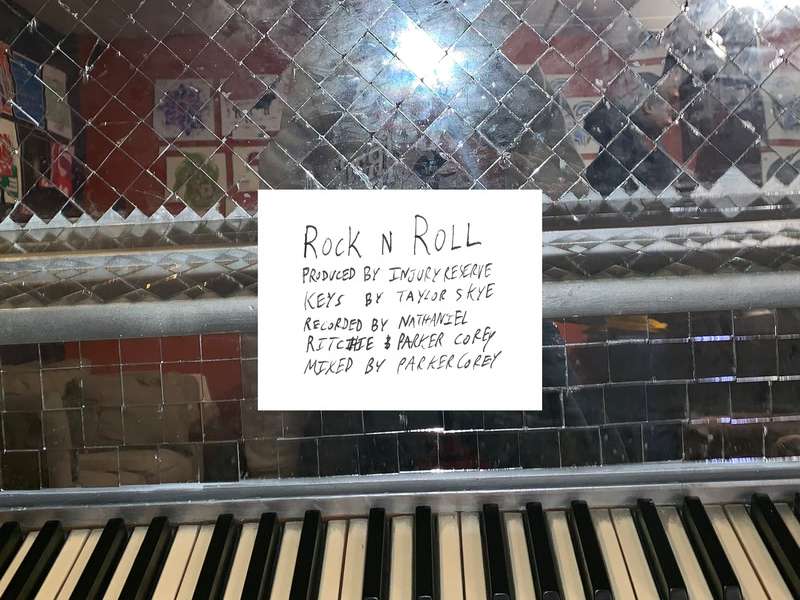 ROCK N ROLL
PRODUCED BY INJURY RESERVE
KEYS BY TAYLOR SKYE
RECORDED BY NATHANIEL
RITCHIE & PARKER COREY
MIXED BY PARKER COREY